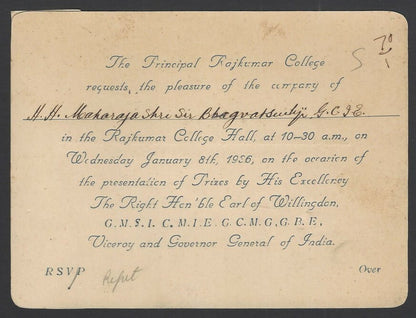 The Principal Rajkumar College
requests the pleasure of the company of
H. H. Maharaja Shri Sir Bhagvatsinhji G.C.I.E.
in the Rajkumar College Hall, at 10-30 a.m., on
Wednesday January 8th, 1936, on the occasion of
the presentation of Prizes by His Excellency
The Right Hon'ble Earl of Willingdon,
G.M.S.I.C.M.I.E.G.C.M.G,G.B.E,
Viceroy and Governor General of India.
RSVP Regret Over